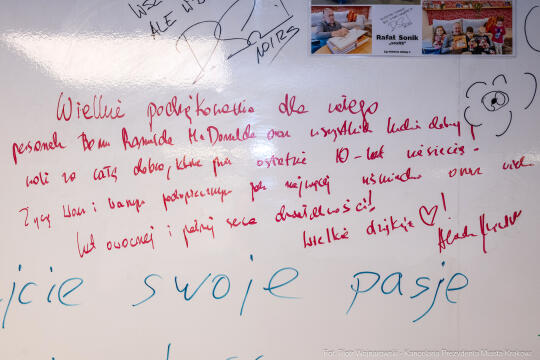 ALE W
NOIRS
Rafał Sonik
Wielkie podziękowania dla całego
personelu Domu Ronalda McDonalda oraz wszystkich ludzi dobrej
woli za całą dobroć, które przez ostatnie 10-lat niesiecie.
Życzę Wam i Waszym podopiecznym jak najwięcej uśmiechu oraz wielu
lat owocnej i pełnej serca działalności!
Wielkie dziękuję ♡!
jcie swoje pasje
Fot. Piotr Wojnarowski - Kancelaria Prezydenta Miasta Krakowa